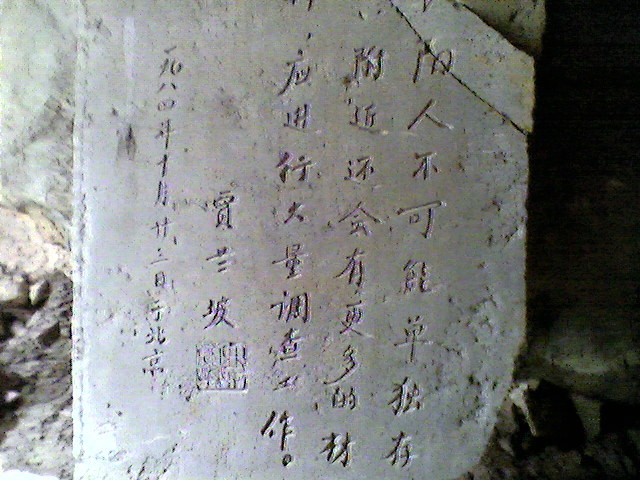 人不可能单独存
附近还会有更多的材
应进行大量调查工作。
贾兰坡
一九八四年十月廿三日于北京